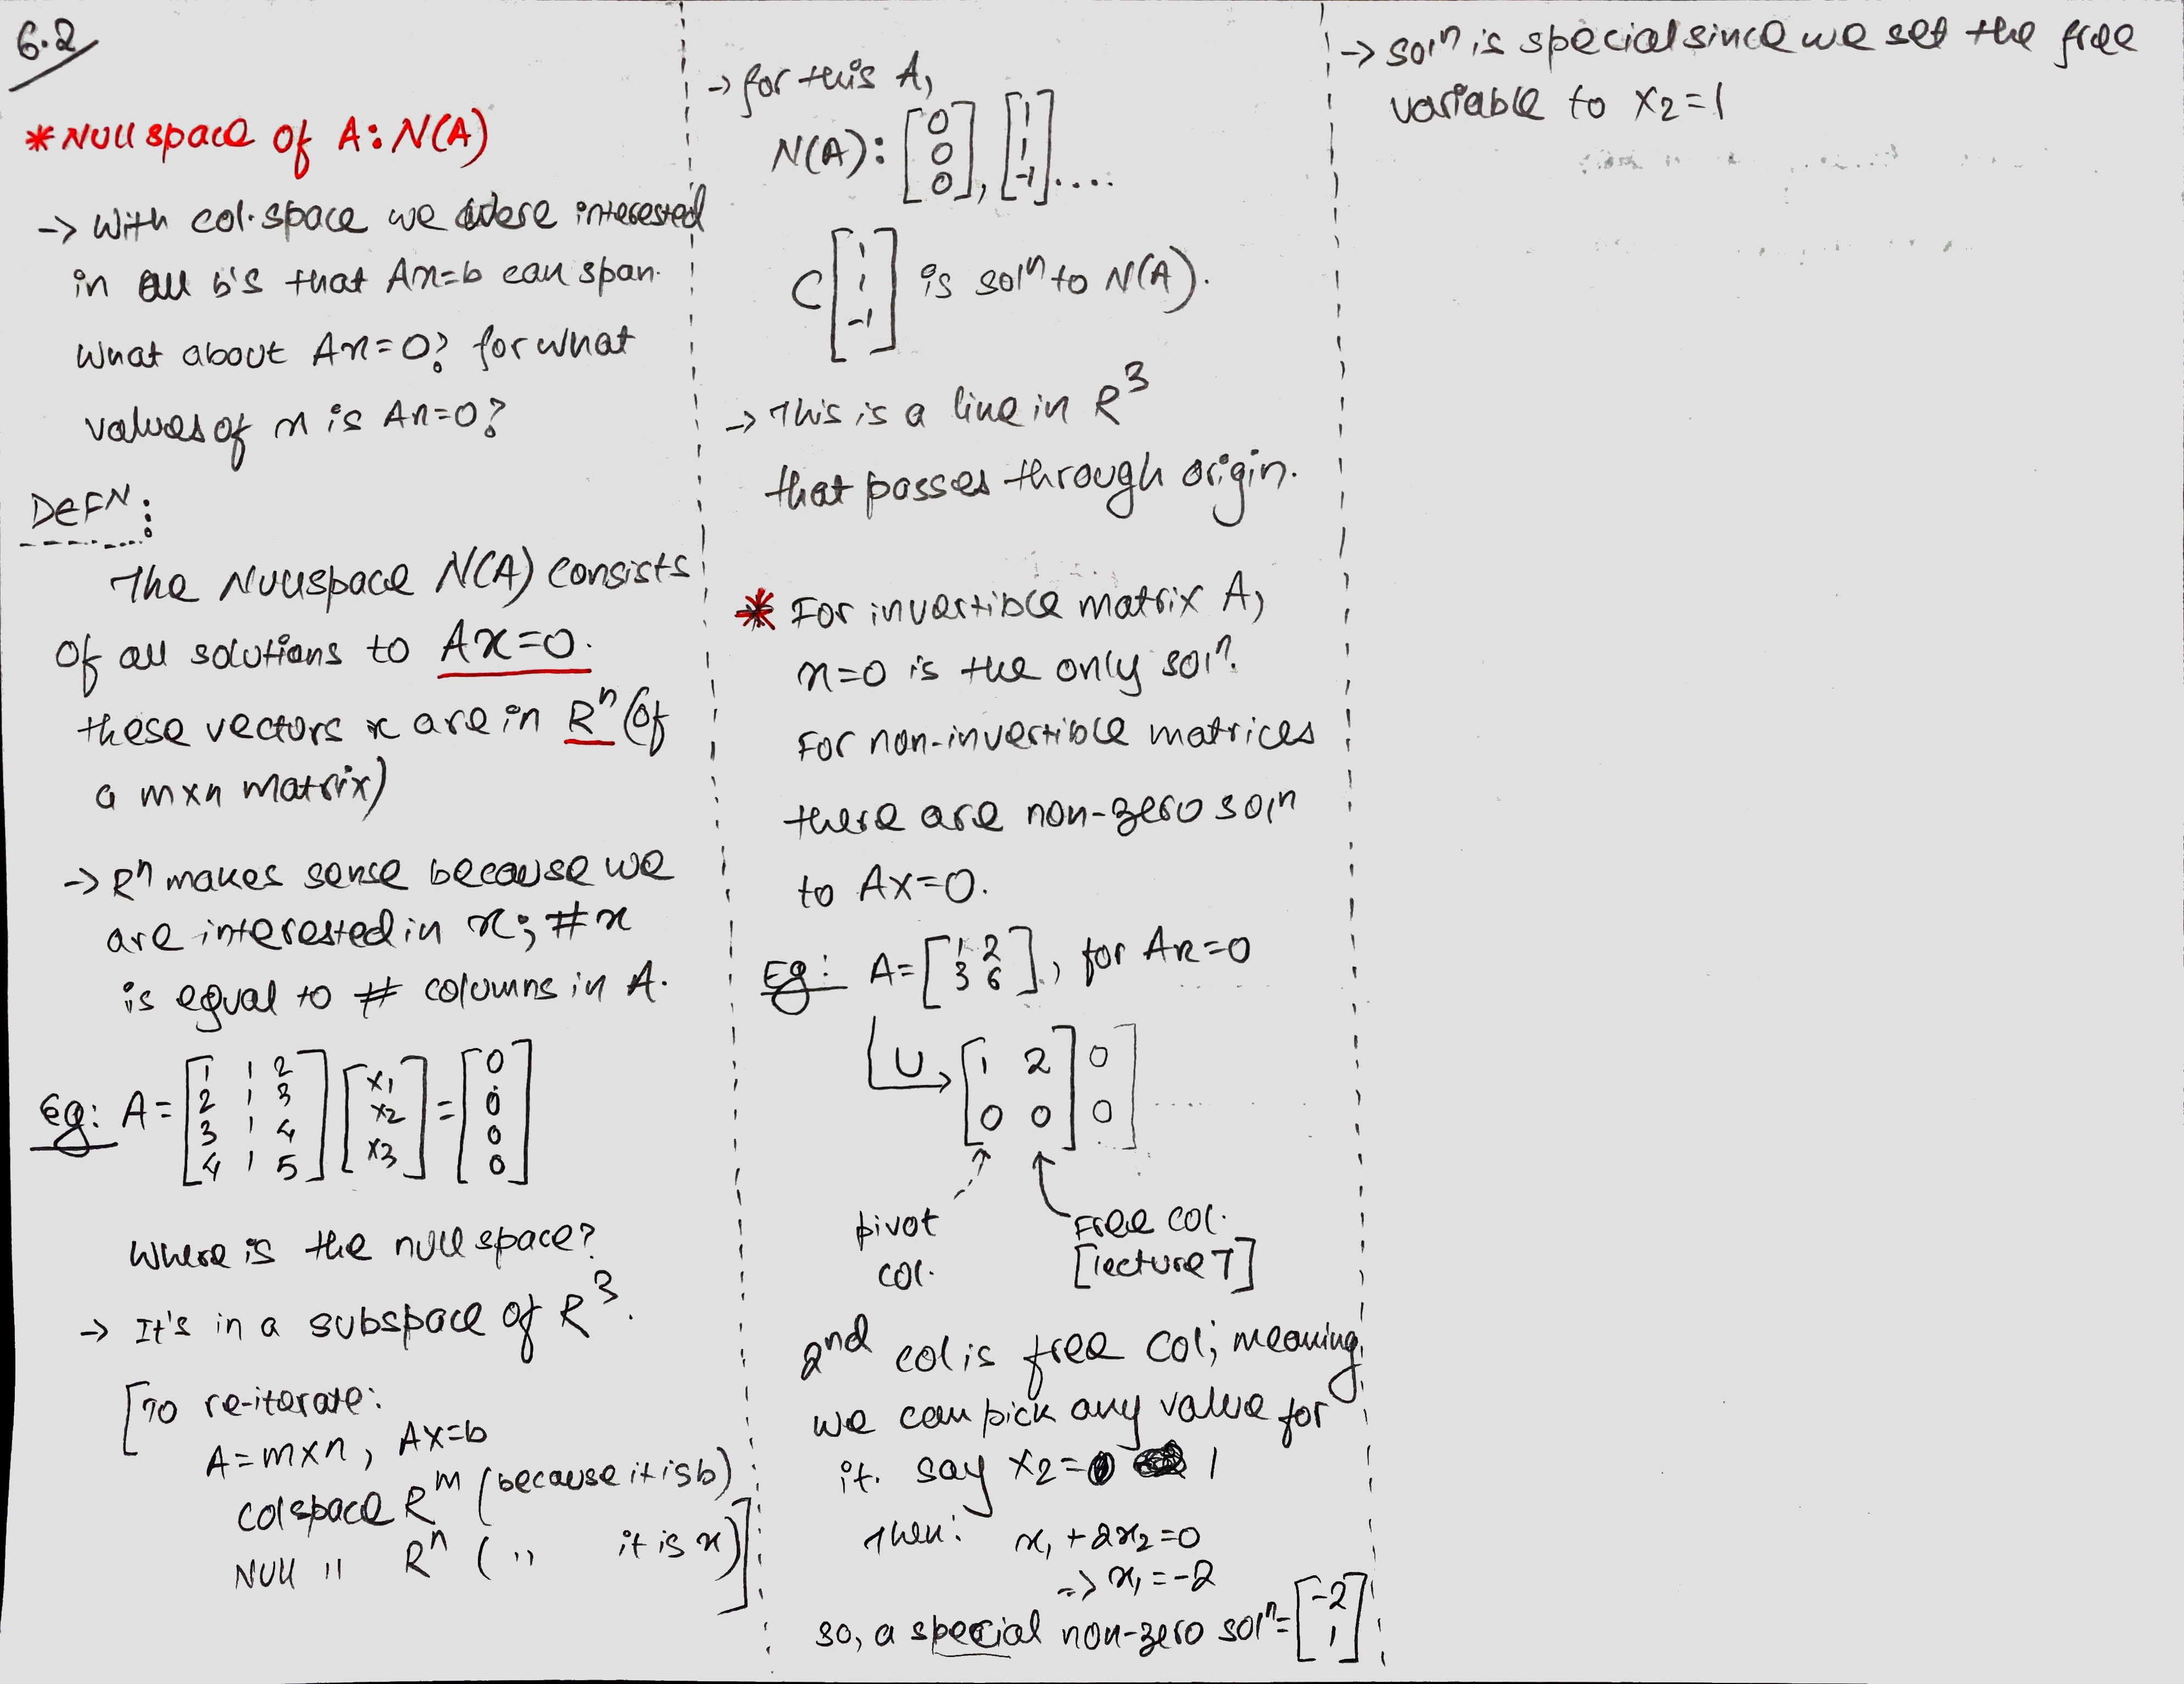 6.2
*Nullspace of A: N(A)
-> With col. space we were interested
in all b's that Ax=b can span.
What about Ax=0? for what
values of x is Ax=0?
DEFN:
The Nullspace N(A) consists
of all solutions to Ax=0.
these vectors x are in Rⁿ (of
a mxn matrix)
-> Rⁿ makes sense because we
are interested in x; #x
is equal to # columns in A.
Eg: A = [1 1 2
2 1 3
3 1 4
4 1 5] [x1
x2
x3] = [0
0
0
0]
Where is the null space?
-> It's in a subspace of R³.
[To re-iterate:
A=mxn, Ax=b
colspace Rᵐ (because it is b)
Null " Rⁿ ( " it is x)]
-> for this A,
N(A): [0
0
0], [1
1
-1]....
C[1
1
-1] is solⁿ to N(A).
-> This is a line in R³
that passes through origin.
* For invertible matrix A,
x=0 is the only solⁿ.
For non-invertible matrices
there are non-zero solⁿ
to AX=0.
Eg: A= [1 2
3 6], for Ax=0
U -> [1 2] 0]
[0 0] 0]
pivot
col.
Free col.
[lecture 7]
2nd col is free col; meaning
we can pick any value for
it. say x2= 1
Then: x₁ + 2x₂ =0
=> x₁ = -2
so, a special non-zero solⁿ= [-2
1]
-> solⁿ is special since we set the free
variable to x2=1